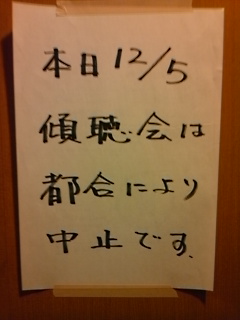 本日12/5
傾聴会は
都合により
中止です.